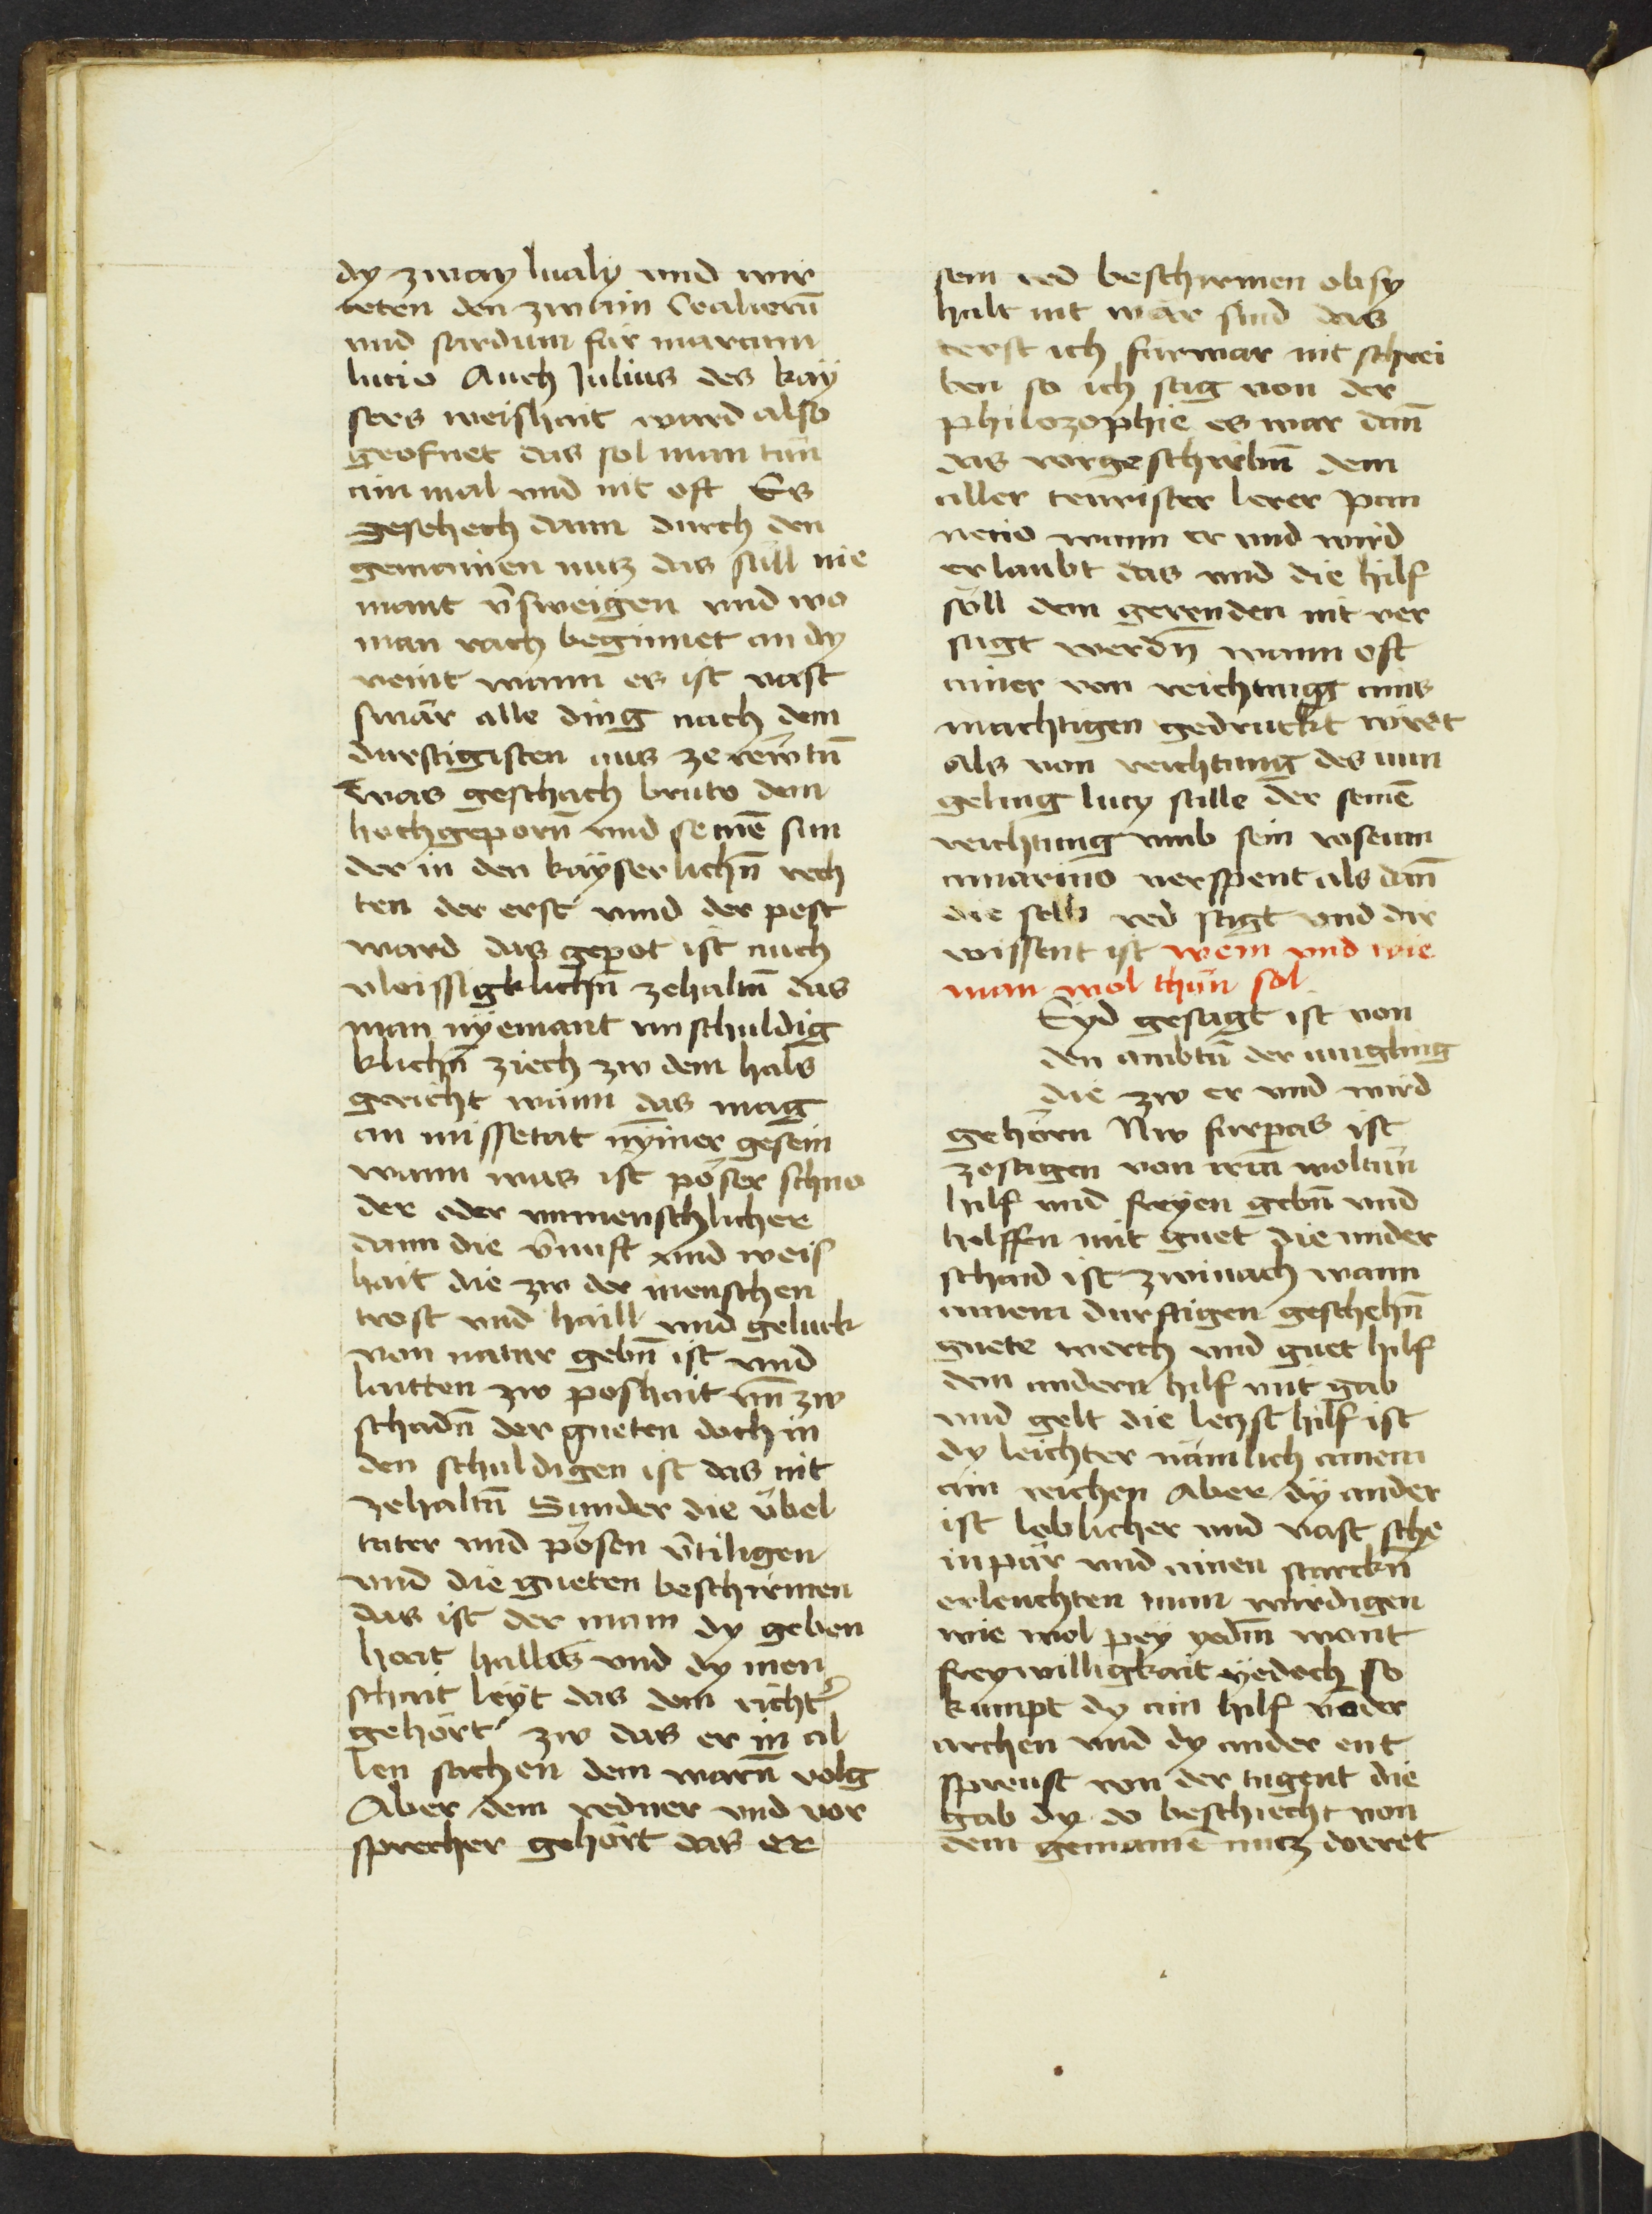 dy zway lualy vnd wir
teten den zwain Cecilierñ
vnd sardum für marcum
lucio Auch Julius des kay
sers weishait ward also
geofnet das sol man tün
ain mal vnd nit oft Es
geschech dann durch den
gemainen nutz das süll nie
mant v̄sweigen vnd wo
man rach beginnet an dy
veint wann es ist vast
swär alle ding nach dem
durftigisten aus ze rewtñ
was geschach bruto dem
hochgeporñ vnd seinē sun
der in den kayserlichñ rech
ten der erst vnnd der pest
ward das gepot ist auch
vleissigklichñ zehaltñ das
man nyemant vnschuldig
klichñ ziech zw dem hals
gericht wann das mag
an missetat nymer gesein
wann was ist pöser schno
der oder vnmenschlicher
dann die v̄nuft vnd weis
hait die zw der menschen
trost vnd haill vnd geluck
von natur gebñ ist vnd
lautten zw poshait vñ zw
schadñ der gueten doch in
den schuldigen ist das nit
zehaltñ Sunder die übel
tater vnd pösen v̄tiligen
vnd die gueten beschirmen
das ist der main dy geben
hait hallis vnd dy men
schait leyt das dem richt̄
gehört zw das er in al
len sachen dem warñ volg
Aber dem redner vnd vor
sprecher gehört das er
sein red beschirmen ob sy
halt nit wär sind das
terst ich fürwar nit schrei
ben so ich sag von der
philozophie es wär dañ
das vorgeschribñ dem
aller teurister lerer pan
necio wann er vnd wird
erlaubt das vnd die hilf
söll dem gerenden nit ver
sagt werdñ wann oft
ainer von reichtung ains
machtigen gedruckt wirt
als von reichtung des iun
geling lucy sille der seinē
reichtung vmb sein roseum
amarino verspent als dañ
die selb red sagt vnd dir
wissent ist wem vnd wie
man wol thün sol
Eyd gesagt ist von
den ambtñ der iungling
die zw er vnd wird
gehörn Nw furpas ist
zesagen von irm woltün
hilf vnd freyen gebñ vnd
helffen mit guet die vnder
schaid ist zwinach wann
ainem durftigen geschehñ
guete werch vnd guet hilf
dem andern hilf mit gab
vnd gelt die letzst hilf ist
dy leichter nämlich ainem
ain reichen Aber dy ander
ist loblicher vnd vast sche
inpar vnd ainen starckñ
erleuchten man wirdigen
wie wol pey yedm̄ wont
freywilligkait yedoch so
kumpt dy ain hilf vō der
archen vnd dy ander ent
spreust von der tugent die
gab dy do beschiecht von
dem gemainē nutz dorret